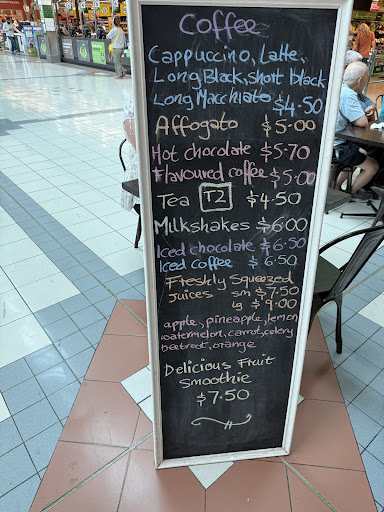 Coffee
Cappuccino, Latte,
Long Black, short black
Long Macchiato $4.50
Affogato $5.00
Hot chocolate $5.70
Flavoured coffee $5.00
Tea T2 $4.50
Milkshakes $6.00
Iced chocolate $6.50
Iced coffee $6.50
Freshly Squeezed
Juices sm $7.50
lg $9.00
apple, pineapple, lemon
watermelon, carrot, celery
beetroot, orange
Delicious Fruit
Smoothie
$7.50